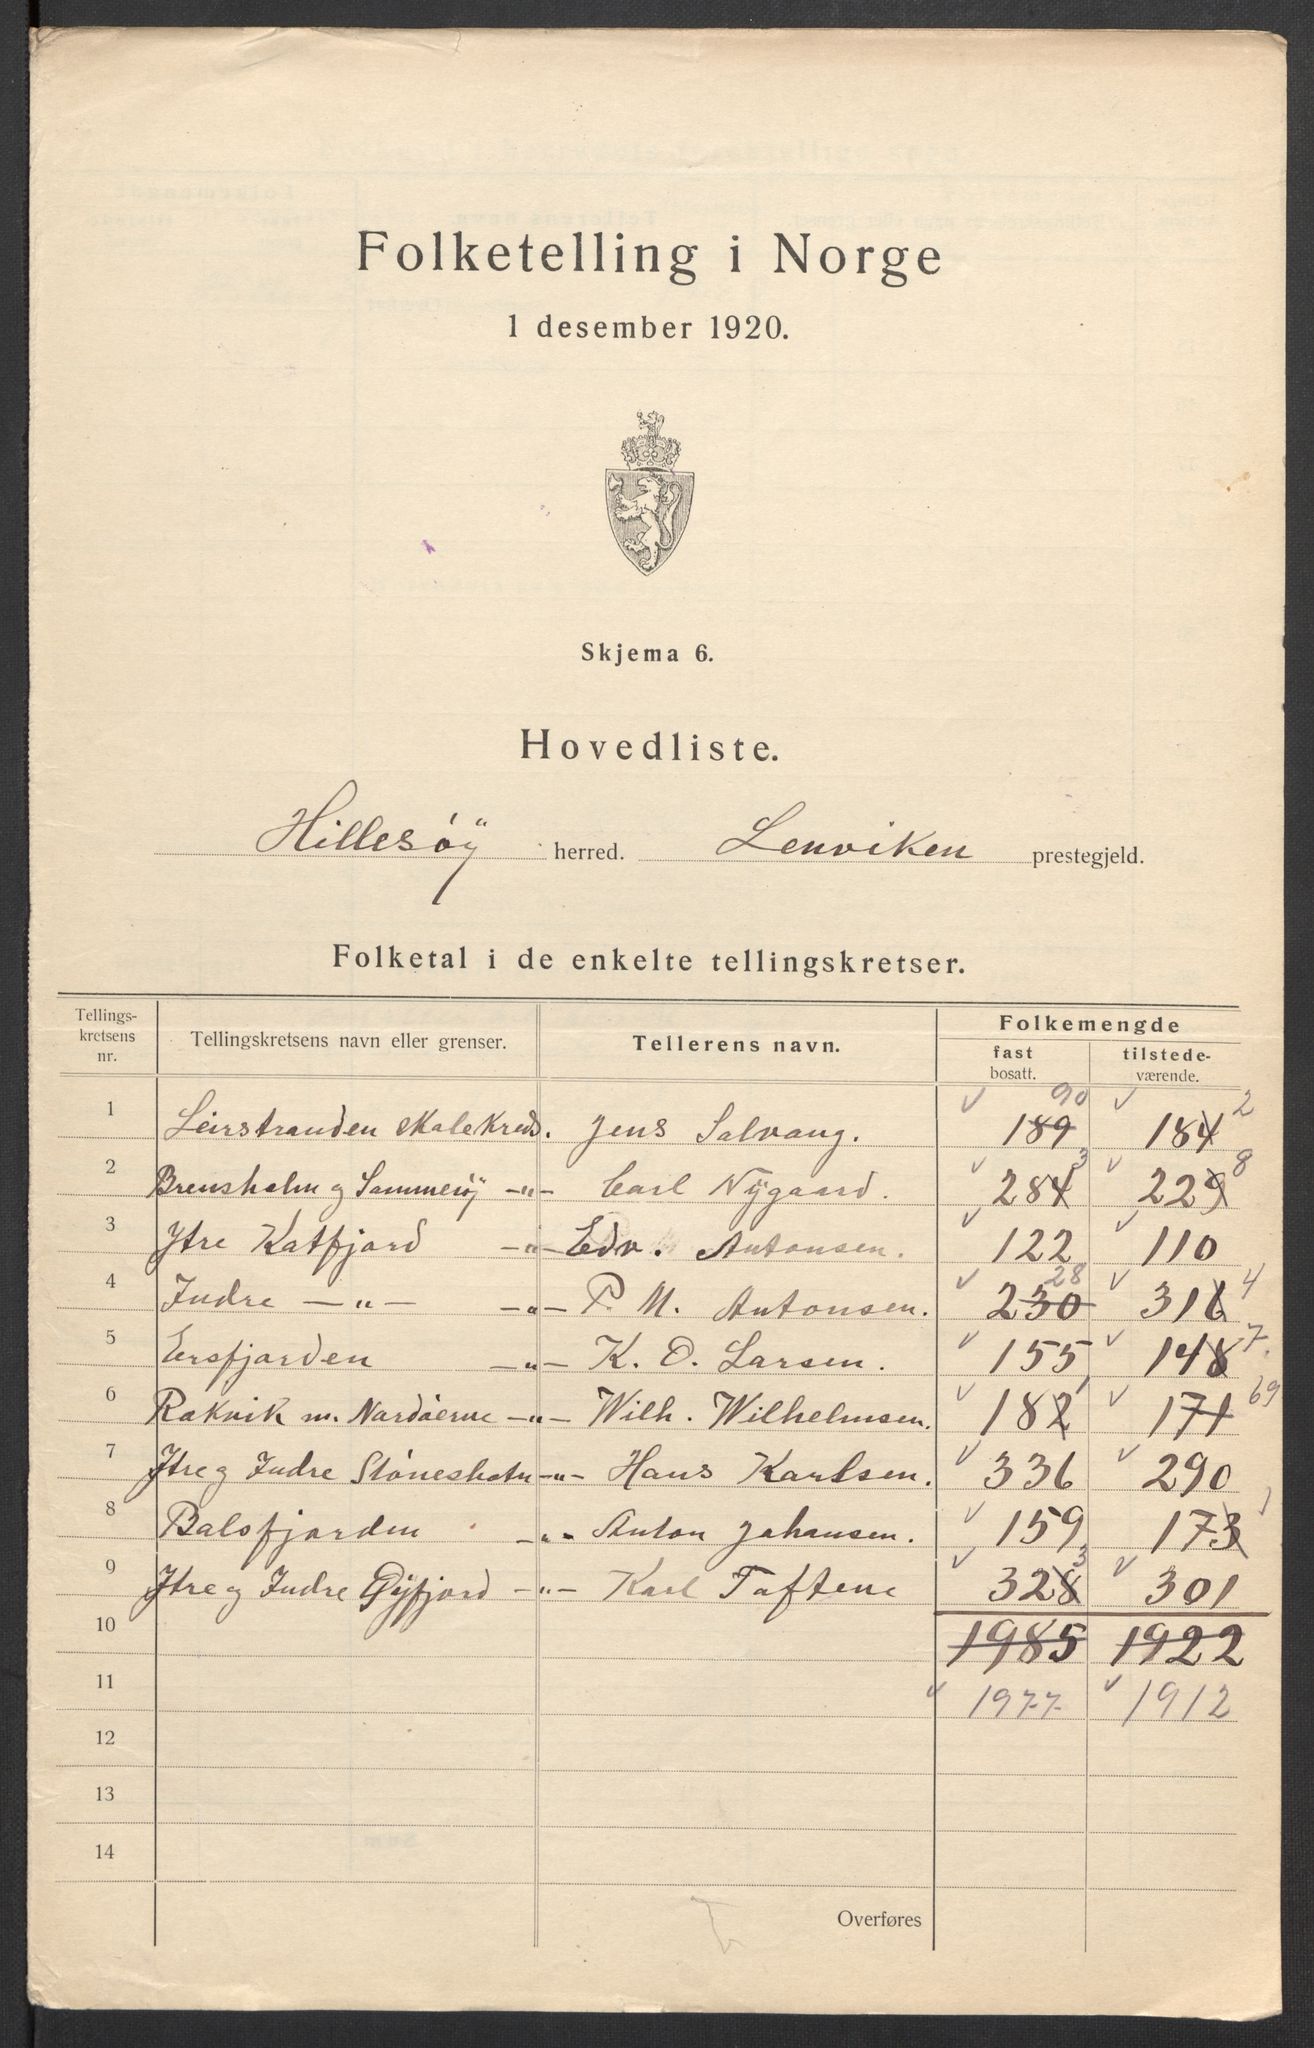 Folketelling i Norge
1 desember 1920.
Skjema 6.
Hovedliste.
Hillesøy herred. Lenviken prestegjeld.
Folketal i de enkelte tellingskretser.
Tellings-kretsens nr. Tellingskretsens navn eller grenser. Tellerens navn. Folkemengde
fast bosatt. tilstede-værende.
1 Leirstranden skolekreds. Jens Salvaag. 189 90 184 2
2 Brensholm og Sommerøy -"- Carl Nygaard. 284 3 229 8
3 Ytre Katfjord -"- Edv. Antonsen. 122 110
4 Indre -"- -"- P. M. Antonsen. 230 28 316 4
5 Ersfjorden -"- K. O. Larsen. 155 148 7
6 Rakvik m. Nordöerne -"- Wilh. Wilhelmsen. 182 1 171 69
7 Ytre og Indre Stönesbotn -"- Hans Karlsen. 336 290
8 Balsfjorden -"- Anton Johansen. 159 173 1
9 Ytre og Indre Gyfjord -"- Karl Toftene 328 3 301
10 1985 1922
11 1977 1912
12
13
14
Overføres